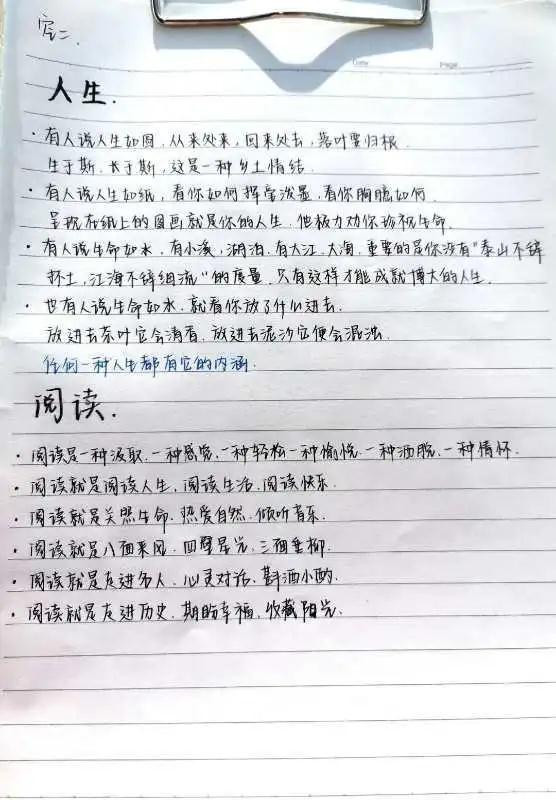 定二.
Date
Page
人生.
· 有人说人生如圆, 从来处来, 回来处去, 落叶要归根.
生于斯. 长于斯, 这是一种乡土情结.
· 有人说人生如纸, 看你如何挥毫泼墨, 看你胸臆如何.
呈现在纸上的图画就是你的人生. 他极力劝你珍视生命.
· 有人说生命如水, 有小溪, 湖泊. 有大江. 大海. 重要的是你没有“泰山不辞
抔土, 江海不辞细流”的度量. 只有这样才能成就博大的人生.
· 也有人说生命如水. 就看你放了什么进去.
放进去茶叶它会清香. 放进去泥沙它便会混浊.
任何一种人生都有它的内涵.
阅读.
· 阅读是一种汲取. 一种感觉. 一种轻松一种愉悦. 一种洒脱. 一种情怀.
· 阅读就是阅读人生, 阅读生活. 阅读快乐.
· 阅读就是关照生命. 热爱自然. 倾听音乐.
· 阅读就是八面来风. 四壁星光. 三面垂柳.
· 阅读就是走进名人. 心灵对话. 斟酒小酌.
· 阅读就是走进历史. 期盼幸福. 收藏阳光.